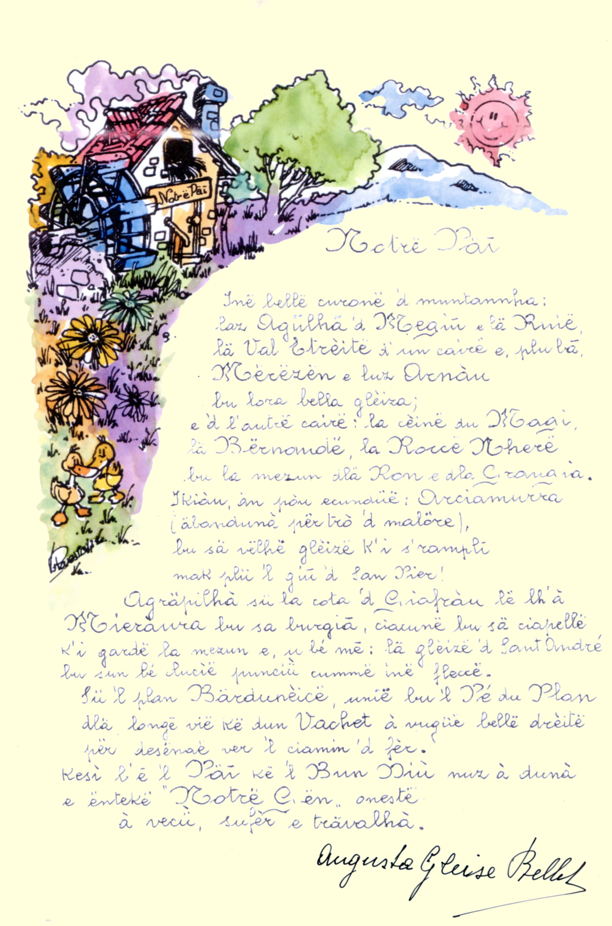 Notrë Päi
Notrë Päi
Inë bellë curonë 'd muntannha:
laz Agülhä 'd Megiū e lä Ruië,
lä Val Etrèitë d'un cairë e, plu bä,
Mèrëzèn e luz Arnàu
bu lora bella glèiza;
e d l'autrë cairë: la cèinë du Magi,
lä Bërnaudë, la Roccë Nherë
bu la mezun dlä Ron e dla Granaìa.
Ikiàu, än pòu ecundüë: Arciamurra
(äbandunà për trò 'd malöre),
bu sä vëlhë glèizë k'i s'ramplì
mak plü 'l giū d San Pier!
Agräpilhà sü la cota 'd Giafràu lë lh'à
Mieräura bu sa burgià, ciacunë bu sä ciapellë
k'i gardë la mezun e, u bé më: lä glèizë 'd Sant'André
bu sun bé clucië punciü cummë inë fleccë.
Sü 'l plan Bärdunèicë, unië bu 'l Pé du Plan
dlä longë vië kë dun Vachet à vugüë bellë drèitë
për desénaë ver 'l ciamin 'd fèr.
Kesì l'ë 'l Päi kë 'l Bun Diù nuz à dunà
e ëntekë "Notrë Gèn" onestë
à vecü, sufèr e trävalhà.
Augusta Gleise Bellet